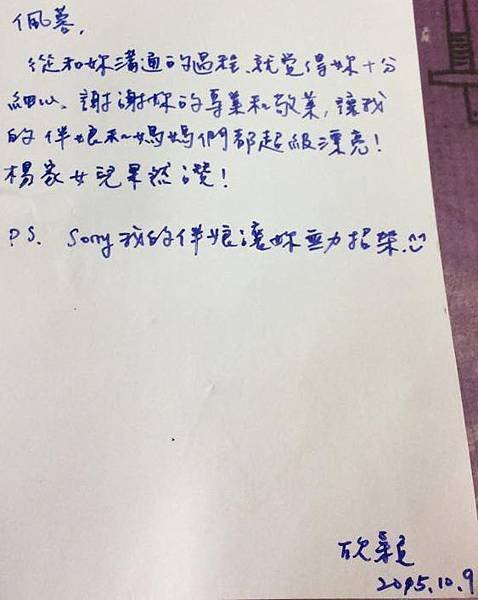 佩蓉,
從和妳溝通的過程,就覺得妳十分
細心、謝謝妳的專業和敬業,讓我
的伴娘和媽媽們都超級漂亮!
楊家女兒果然讚!
P.S. Sorry 我的伴娘讓妳無力招架
2015.10.9